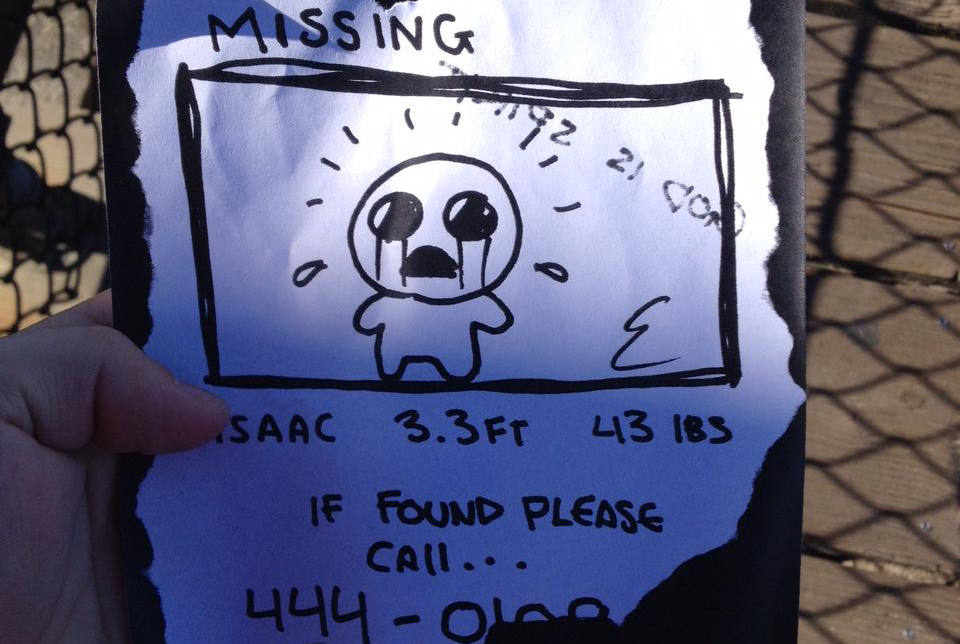 MISSING
21
E
ISAAC 3.3FT 43 lBS
IF FOUND PLEASE
CAll...
444-